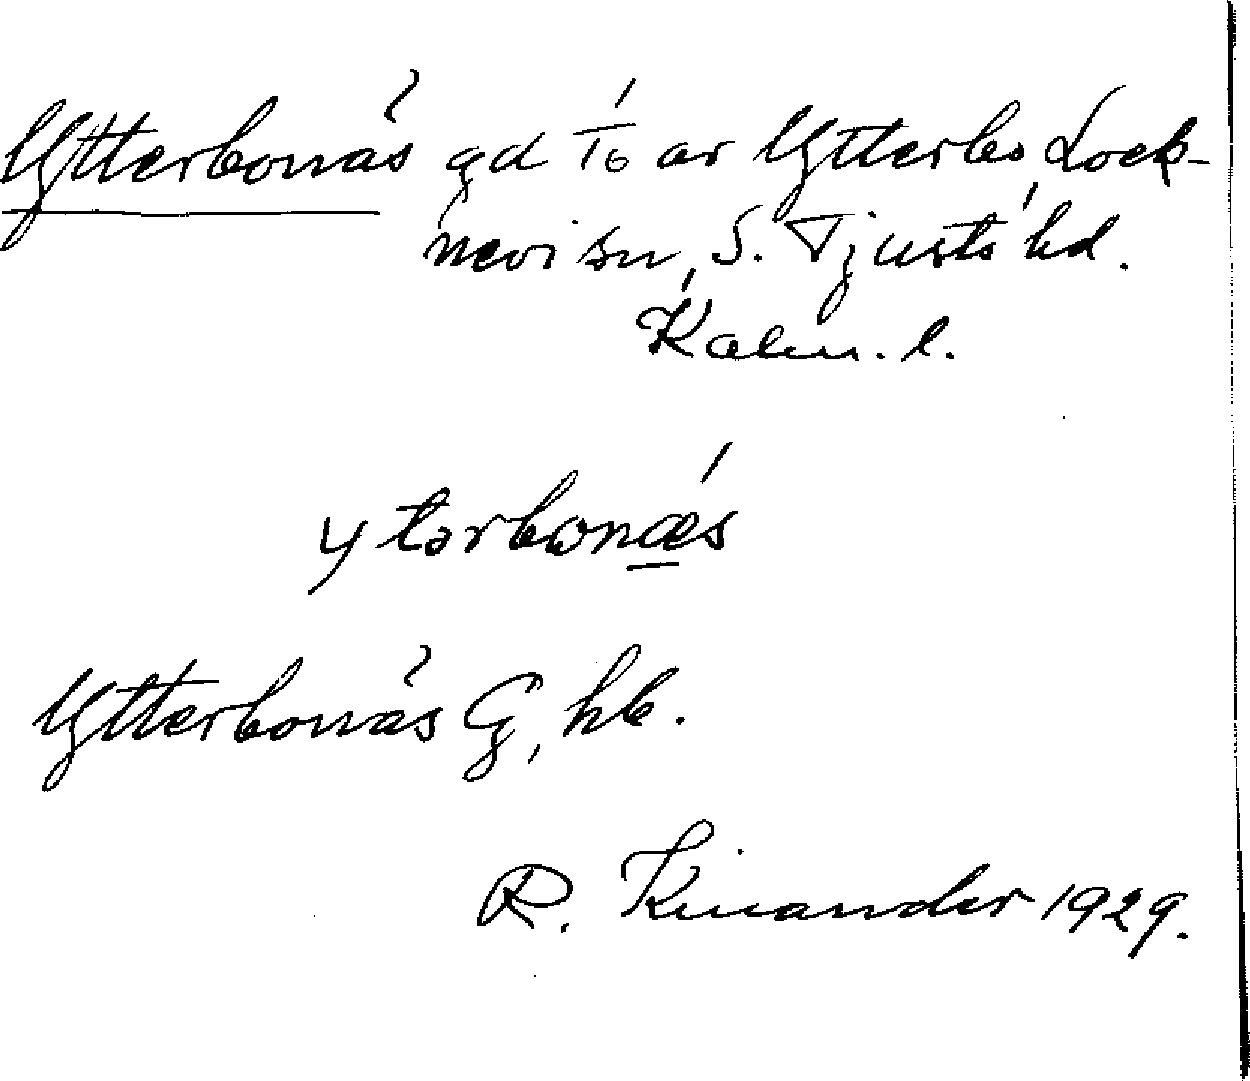 Ytterbonäs gd 1/6 av Ytterbo, Lock-
nevi sn, S. Tjusts hd.
Kalm. l.
ytərbωnæs
Ytterbonäs G, hb.
R. Kinander 1929.